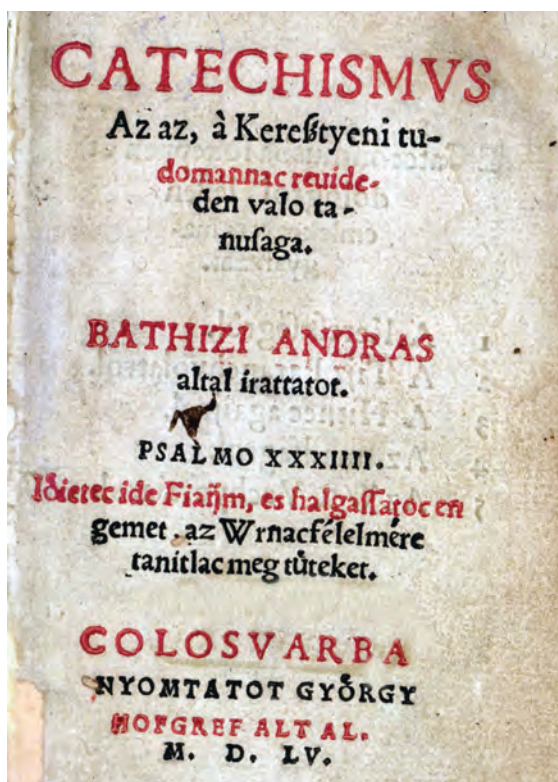 CATECHISMVS
Az az, à Kereßtyeni tu-
domannac reuide-
den valo ta-
nuſaga.
BATHIZI ANDRAS
altal irattatot.
PSALMO XXXIIII.
Iőietec ide Fiaijm, es halgaſſatoc en
gemet, az Wrnac félelmére
tanitlac meg tůteket.
COLOSVARBA
NYOMTATOT GYŐRGY
HOFGREF ALTAL.
M. D. LV.